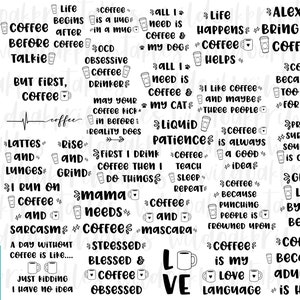 COFFEE
BEFORE
TALKIE
BUT FIRST,
COFFEE
coffee
LATTES
AND
LUNGES
RISE
AND
GRIND
I RUN ON
COFFEE
AND
SARCASM
A DAY WITHOUT
COFFEE IS LIKE....
JUST KIDDING
I HAVE NO IDEA
LIFE
BEGINS
AFTER
COFFEE
COFFEE
IS A HUG
IN A MUG
OCD
OBSESSIVE
COFFEE
DRINKER
MAY YOUR
COFFEE KICK
IN BEFORE
REALITY DOES
FIRST I DRINK
COFFEE THEN I
DO THINGS
MAMA
NEEDS
COFFEE
STRESSED
BLESSED &
COFFEE
OBSESSED
ALL I
NEED IS
COFFEE &
MY DOG
ALL I
NEED IS
COFFEE &
MY CAT
LIQUID
PATIENCE
COFFEE
TEACH
SLEEP
REPEAT
COFFEE
AND
MASCARA
LOVE
LIFE
HAPPENS
COFFEE
HELPS
I LIKE COFFEE
AND MAYBE
THREE PEOPLE
COFFEE
IS ALWAYS
A GOOD
IDEA
COFFEE
BECAUSE
PUNCHING
PEOPLE IS
FROWNED UPON
COFFEE
IS MY
LOVE
LANGUAGE
ALEX
BRING
COFF
COF
BECA
ADU
IS H